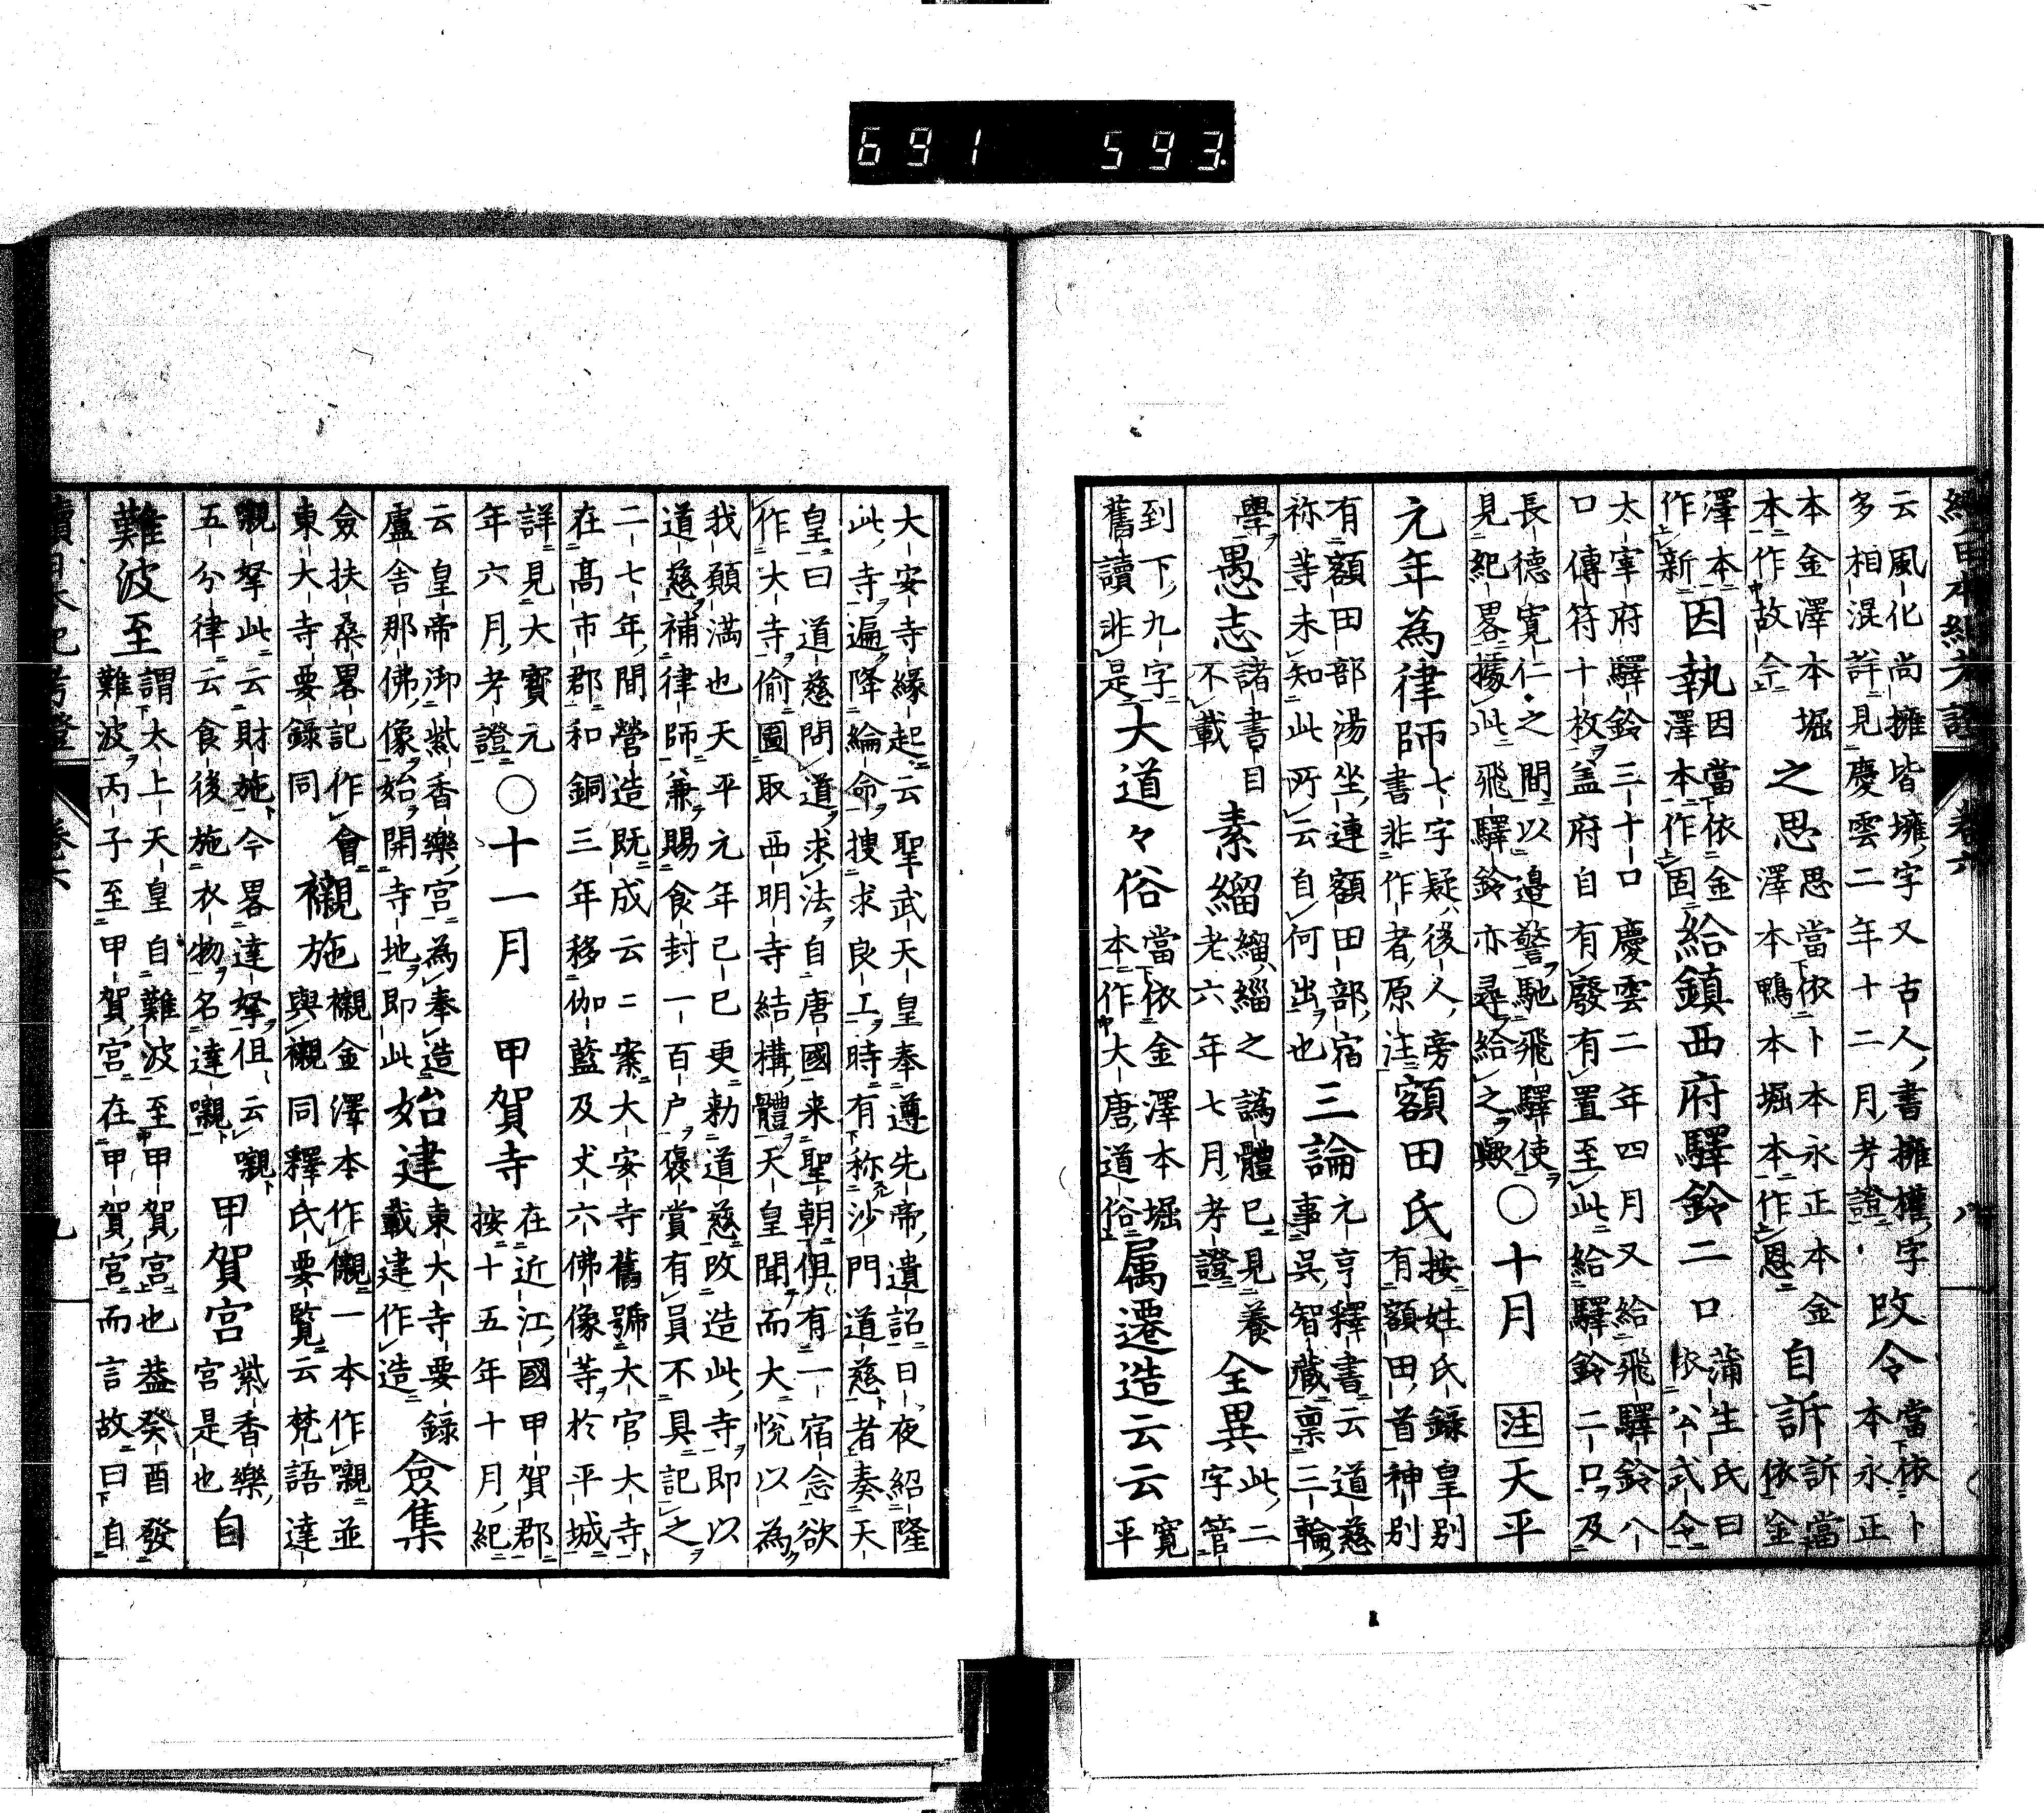 691 593.
續日本紀考證 卷六 八
云風化尚擁皆壅字又古人書擁權字改令當依卜
多相混詳見慶雲二年十二月考證 本永正
本金澤本堀之思思當依卜本永正本金自訴訴當
本作故今 澤本鴨本堀本作恩 依金
澤本因執因當依金給鎮西府驛鈴二口蒲生氏曰
作新 澤本作固 依公式令
太宰府驛鈴三十口慶雲二年四月又給飛驛鈴八
口傳符十枚盖府自有廢有置至此給驛鈴二口及
長德寬仁之間以邊警馳飛驛使○十月 注天平
見紀畧據此飛驛鈴亦尋給之歟
元年為律師七字疑後人旁額田氏按姓氏錄皇別
書非作者原注 有額田首神別
有額田部湯坐連額田部宿三論元亨釋書云道慈
祢等未知此所云自何出也 事吳智藏禀三輪
學愚志諸書目素緇緇之譌體已見養全異此二
不載 老六年七月考證 字管
到下九字大道々俗當依金澤本堀属遷造云云寬
舊讀非是 本作大唐道俗 平
大安寺緣起云聖武天皇奉遵先帝遺詔曰夜紹隆
此寺遍降綸命搜求良工時有称沙門道慈者奏天
皇曰道慈問道求法自唐國来聖朝俱有一宿念欲
作大寺偷圖取西明寺結構體天皇聞而大悅以為
我願満也天平元年已巳更勅道慈改造此寺即以
道慈補律師兼賜食封一百户褒賞有員不具記之
二七年間營造既成云二案大安寺舊號大官大寺
在髙市郡和銅三年移伽藍及丈六佛像等於平城
詳見大寶元○十一月 甲賀寺在近江國甲賀郡
年六月考證 按十五年十月紀
云皇帝御紫香樂宮為奉造始建東大寺要錄僉集
盧舍那佛像始開寺地即此 載建作造
僉扶桑畧記作會襯施襯金澤本作儭一本作嚫並
東大寺要錄同 與襯同釋氏要覽云梵語達
嚫拏此云財施今畧達拏但云嚫甲賀宮紫香樂自
五分律云食後施衣物名達嚫 宮是也
難波至謂太上天皇自難波至甲賀宮也葢癸酉發
難波丙子至甲賀宮在甲賀宮而言故曰自
續日本紀考證 卷六 九